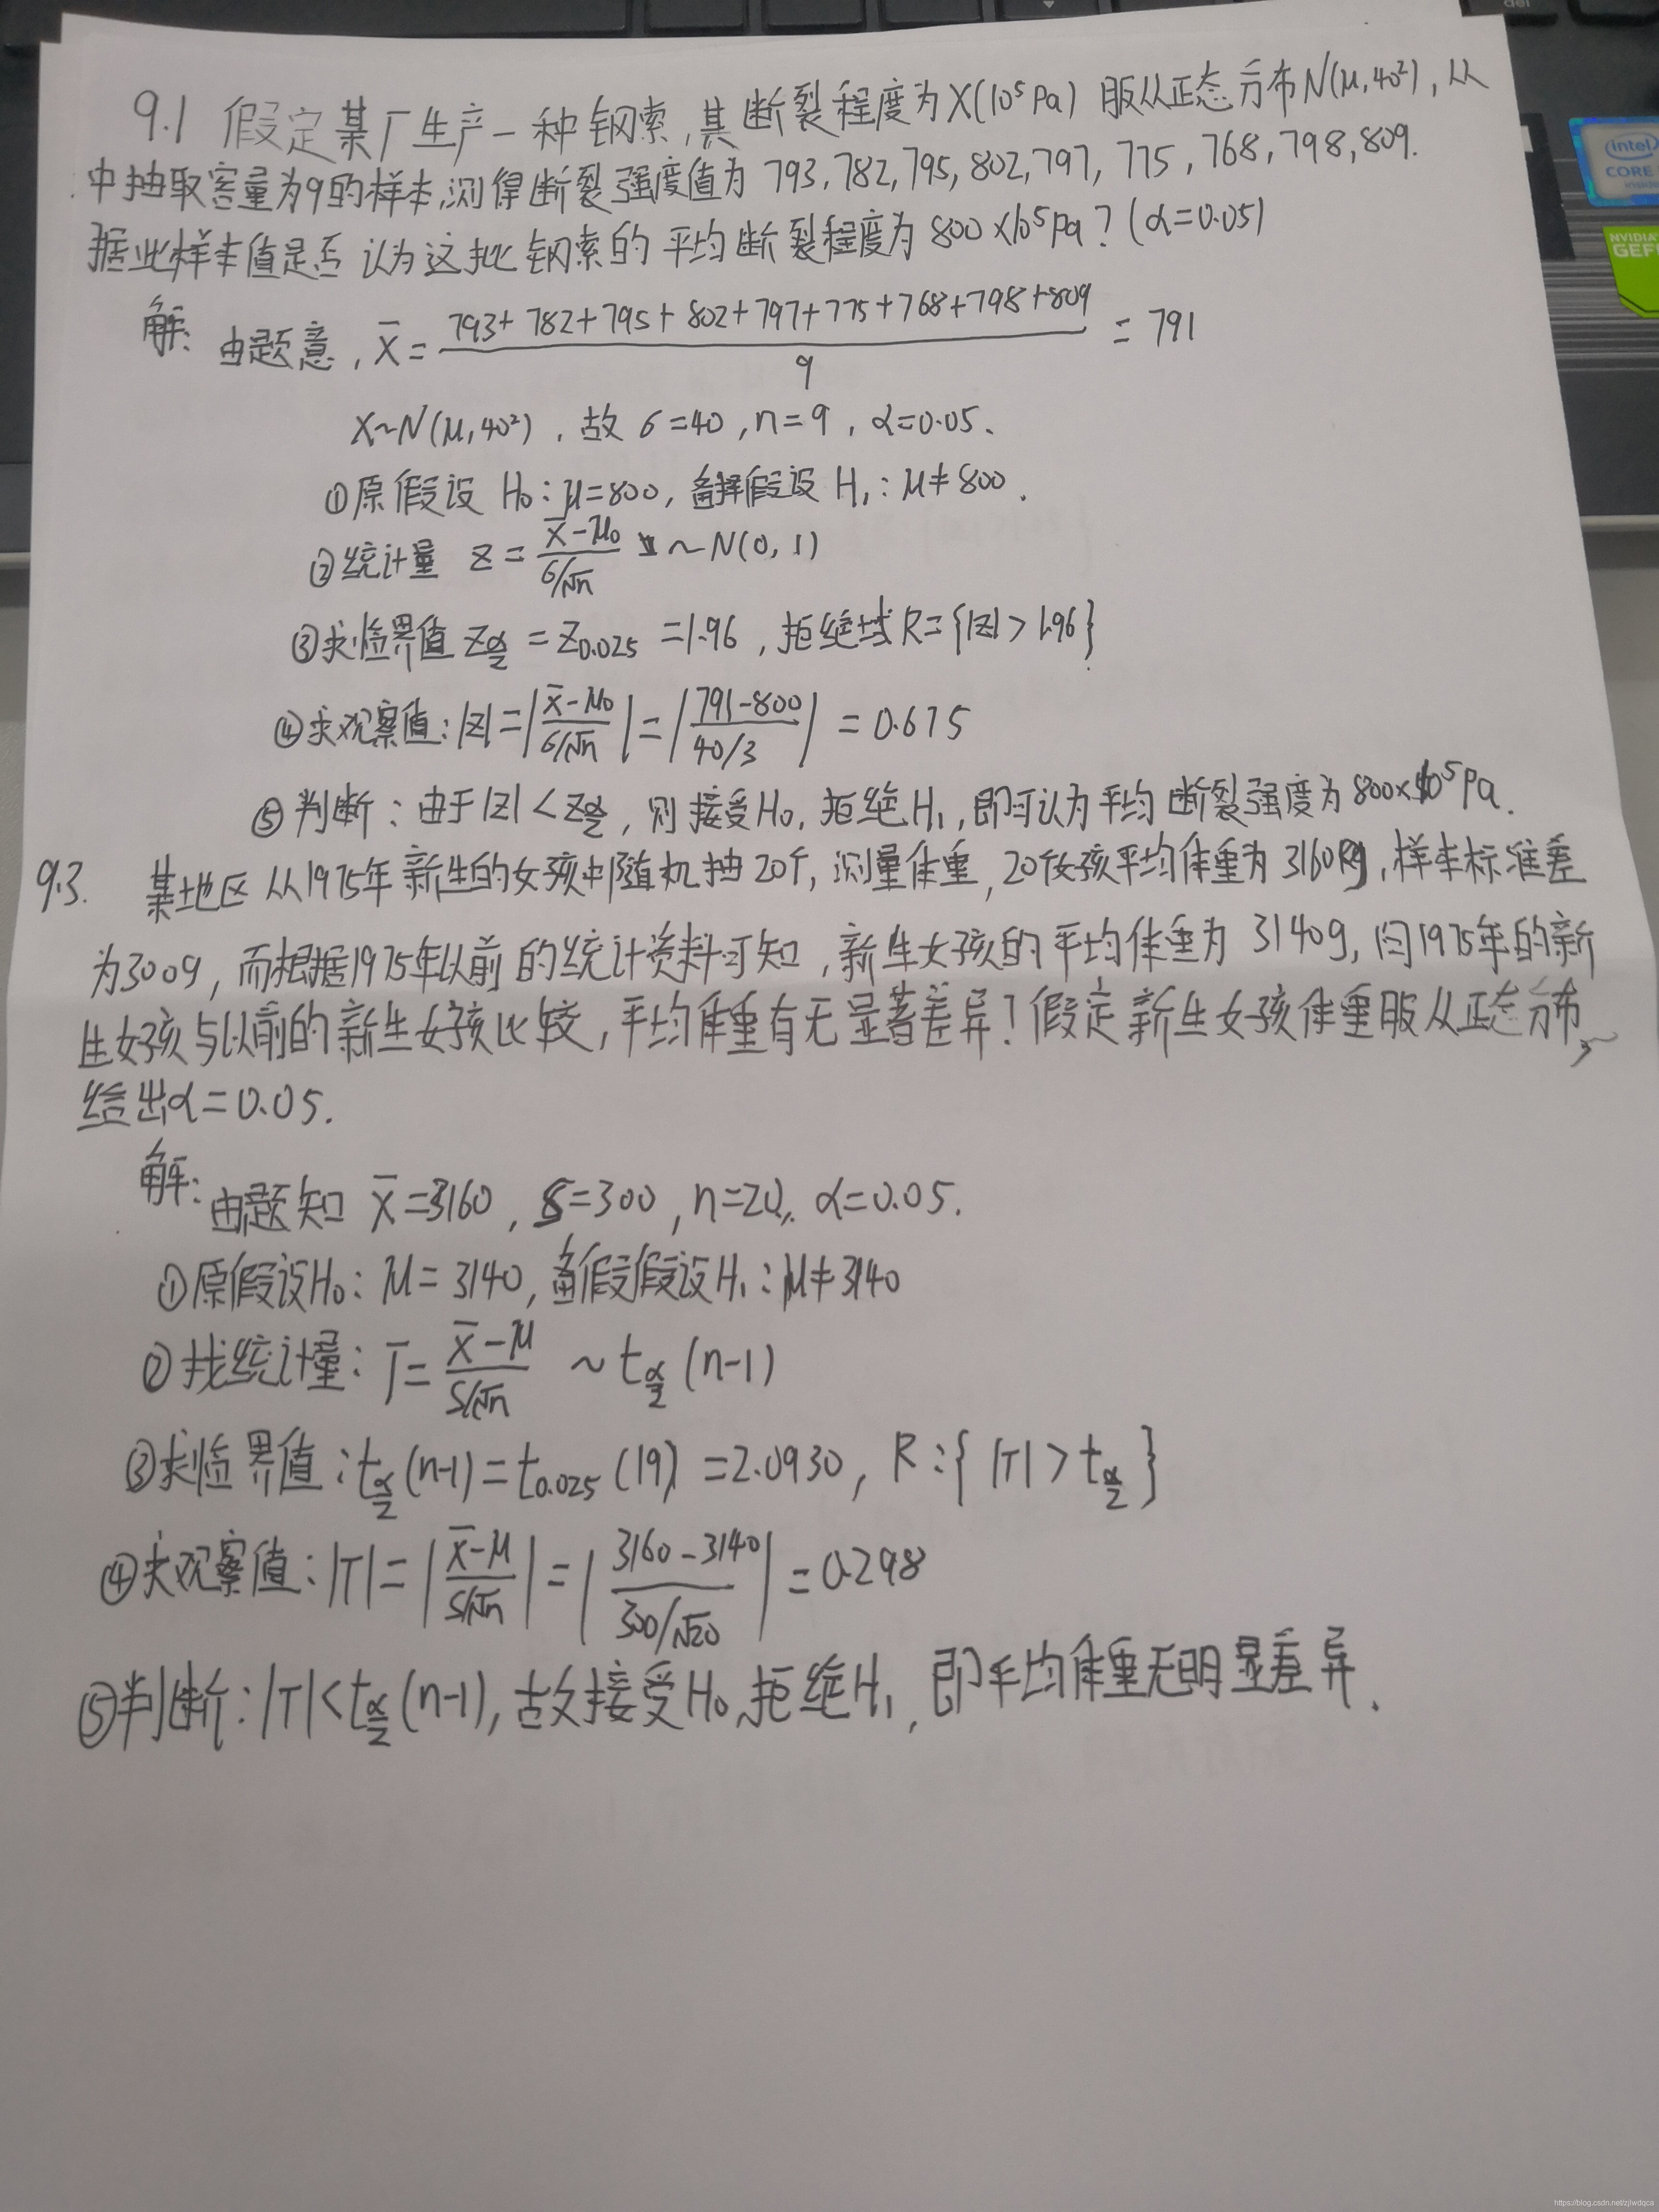 del
intel
CORE
inside
NVIDIA
GEFO
9.1 假定某厂生产一种钢索,其断裂程度为X(10⁵Pa) 服从正态分布N(μ,40²),从
中抽取容量为9的样本,测得断裂强度值为 793,782,795,802,797,775,768,798,809.
据此样本值是否认为这批钢索的平均断裂程度为800×10⁵Pa?(α=0.05)
解: 由题意, X̄ = (793+782+795+802+797+775+768+798+809)/9 = 791
X~N(μ,40²), 故 σ=40, n=9, α=0.05、
①原假设 H₀:μ=800, 备择假设 H₁:μ≠800.
②统计量 Z = (X̄-μ₀)/(σ/√n) ~N(0,1)
③求临界值 Z_{α/2} = Z_{0.025} =1.96, 拒绝域R={|Z|>1.96}
④求观察值:|Z|=|(X̄-μ₀)/(σ/√n)|=|(791-800)/(40/3)| = 0.675
⑤判断:由于|Z|<Z_{α/2}, 则接受H₀, 拒绝H₁,即可认为平均断裂强度为800×10⁵Pa.
9.3. 某地区从1975年新生的女孩中随机抽20个,测量体重,20个女孩平均体重为3160kg,样本标准差
为300g,而根据1975年以前的统计资料可知,新生女孩的平均体重为3140g,问1975年的新
生女孩与以前的新生女孩比较,平均体重有无显著差异?假定新生女孩体重服从正态分布,
给出α=0.05.
解: 由题知 X̄=3160, S=300, n=20, α=0.05.
①原假设H₀: μ=3140, 备假假设H₁:μ≠3140
②找统计量: T=(X̄-μ)/(S/√n) ~ t_{α/2}(n-1)
③求临界值:t_{α/2}(n-1)=t_{0.025}(19)=2.0930, R:{|T|>t_{α/2}}
④求观察值:|T|=|(X̄-μ)/(S/√n)|=|(3160-3140)/(300/√20)|=0.298
⑤判断:|T|<t_{α/2}(n-1),故接受H₀,拒绝H₁,即平均体重无明显差异.
https://blog.csdn.net/zjlwdqca